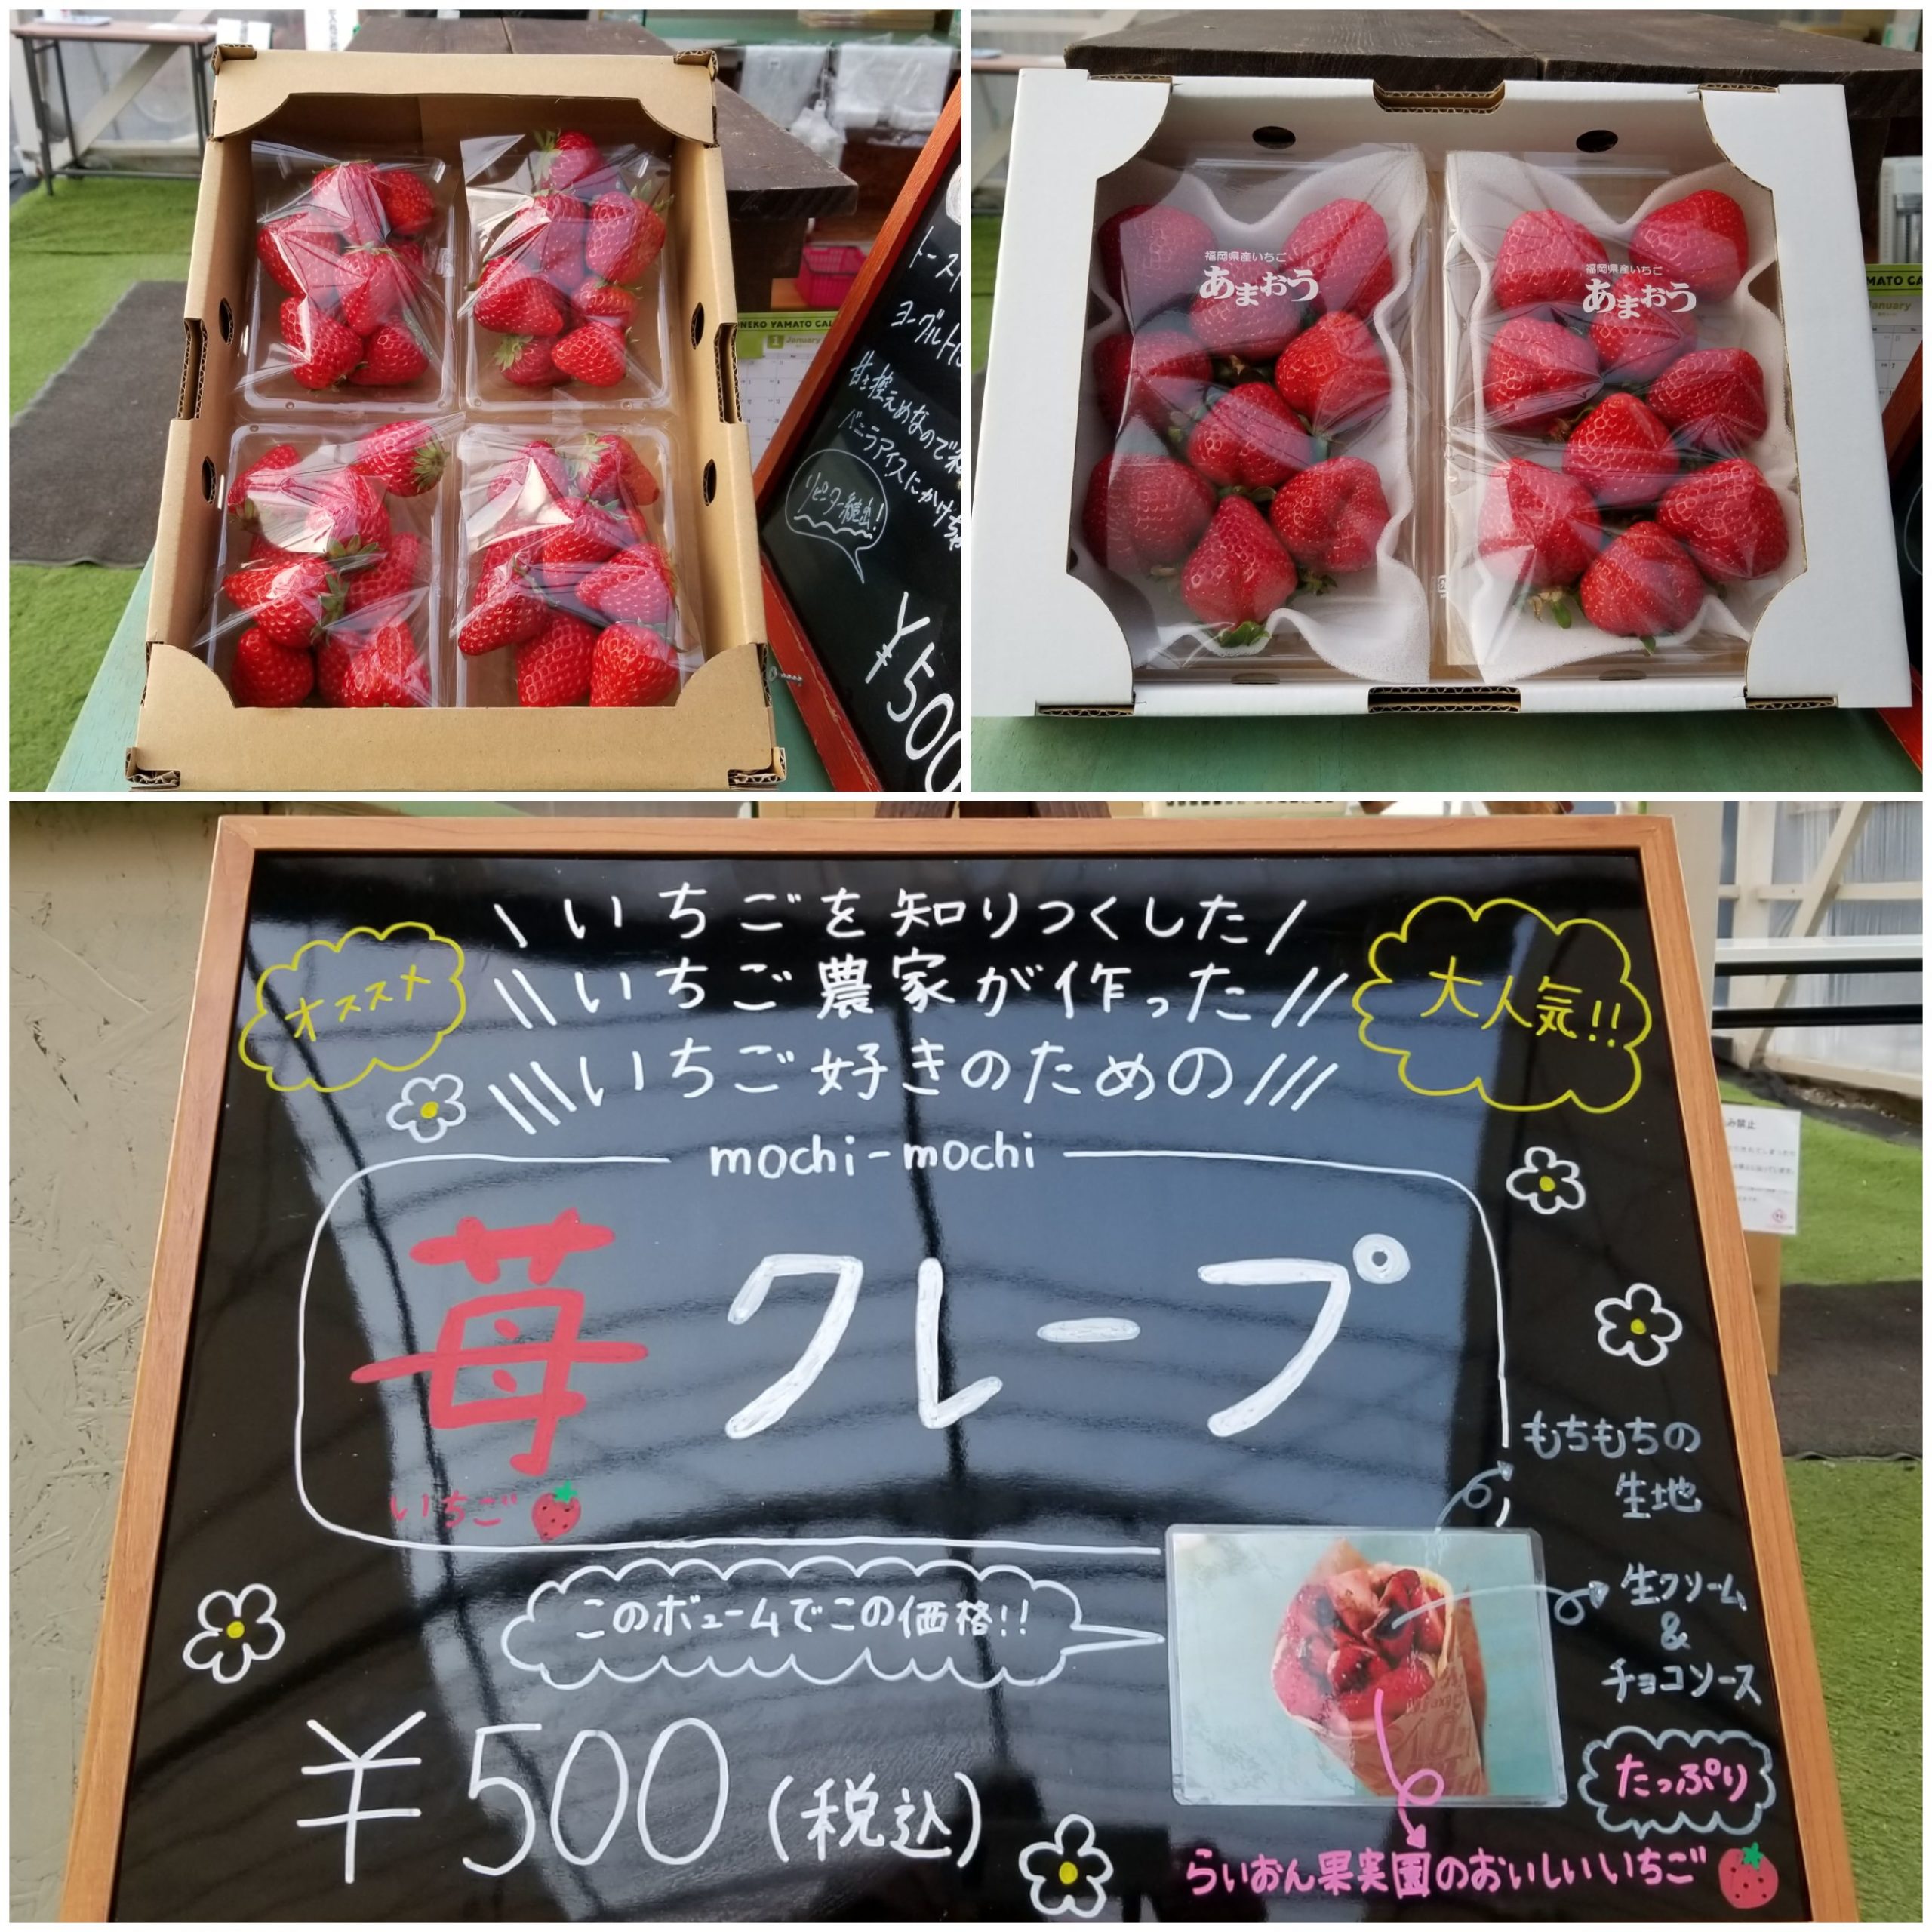 トースト
ヨーグルトに
甘さ控えめなので
バニラアイスにかけ
リピーター続出!
¥500
NEKO YAMATO CAL
1 January
福岡県産いちご
あまおう
福岡県産いちご
あまおう
MATO CA
January
オススメ
\いちごを知りつくした/
\\いちご農家が作った//
\\\いちご好きのための///
大人気!!
mochi-mochi
苺クレープ
いちご
もちもちの
生地
生クリーム
&
チョコソース
たっぷり
このボュームでこの価格!!
¥500(税込)
らいおん果実園のおいしいいちご
み禁止